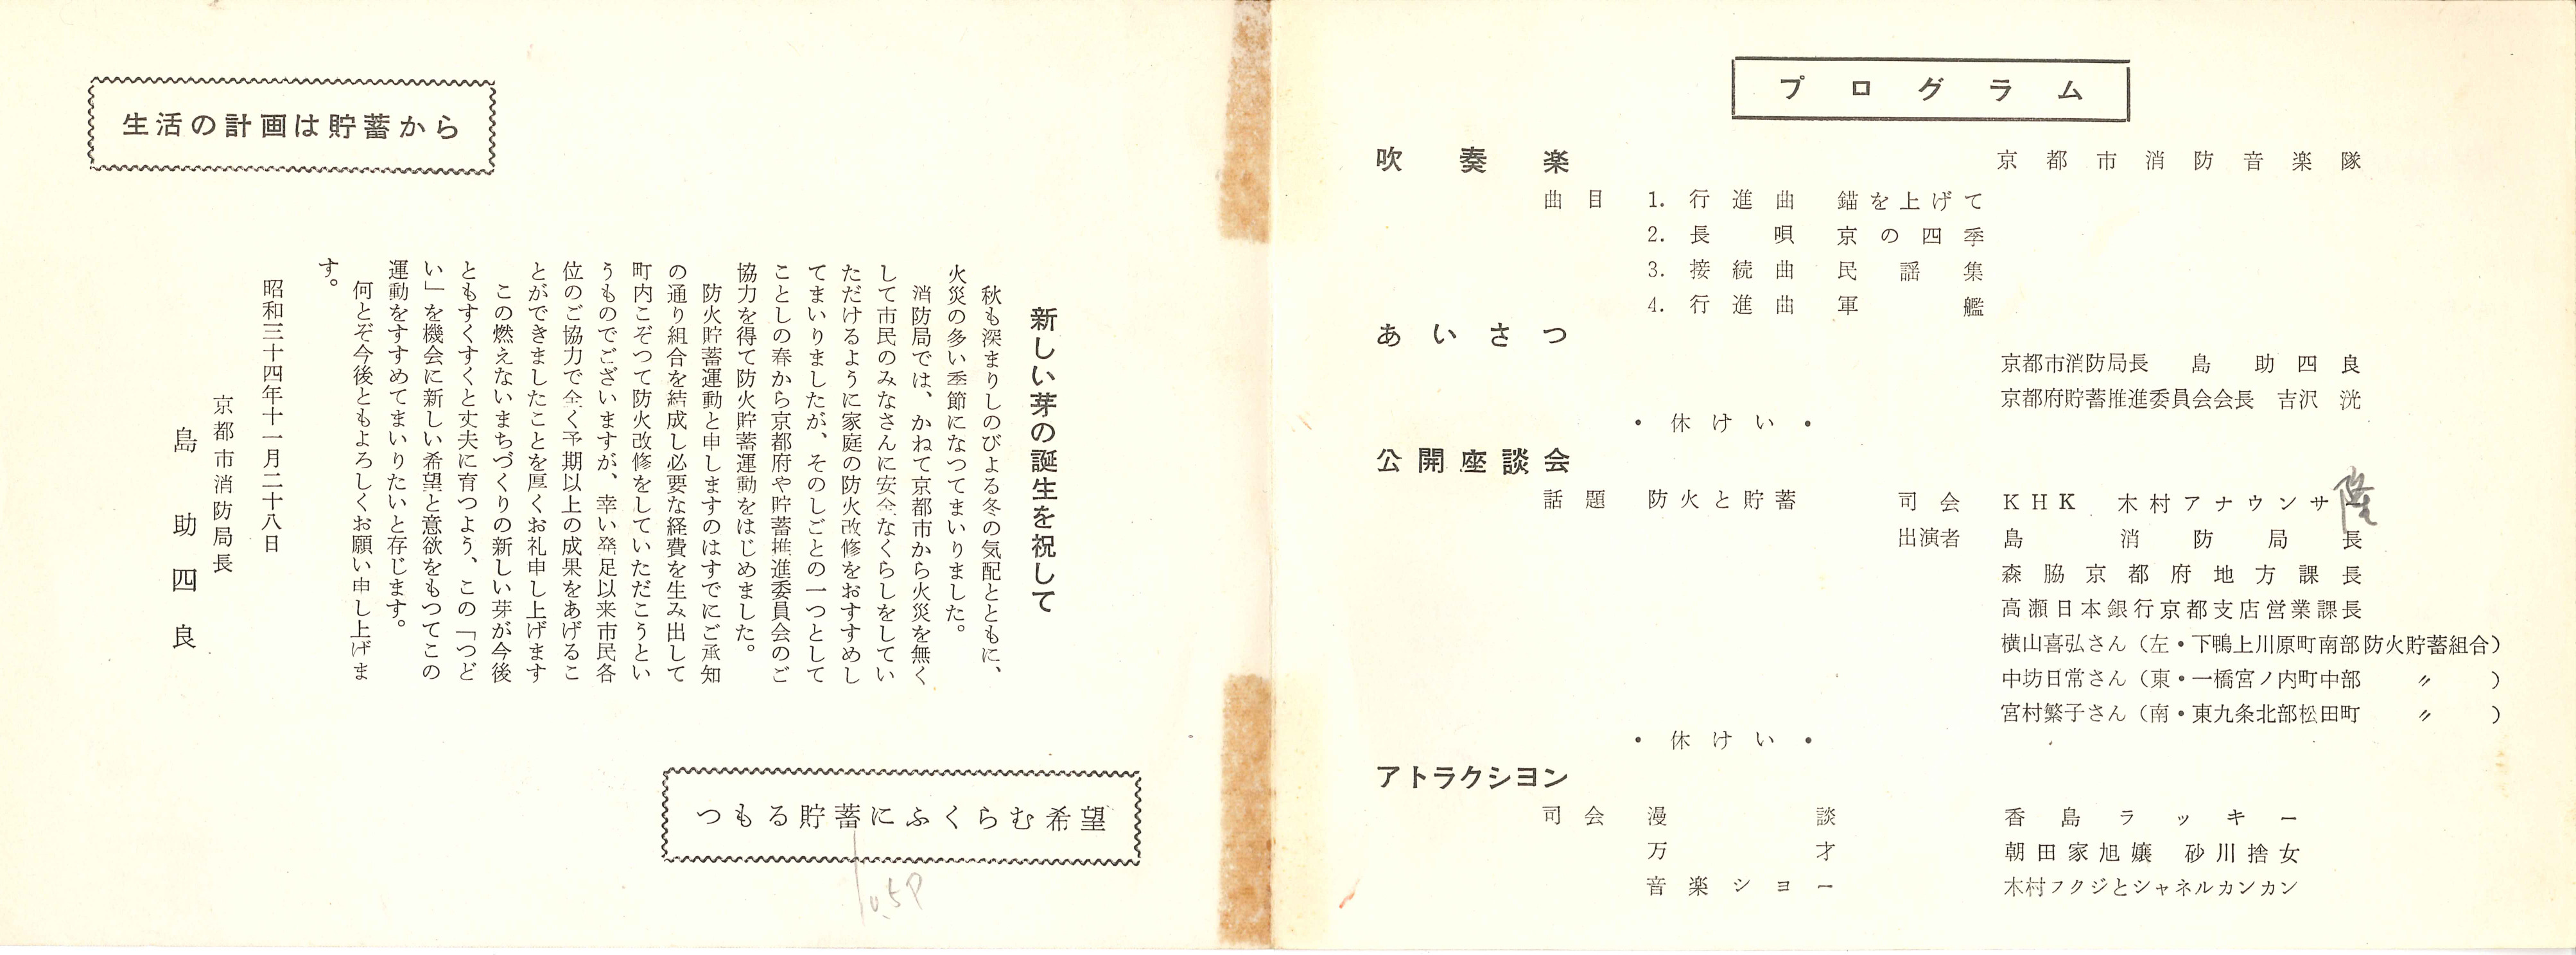 生活の計画は貯蓄から
新しい芽の誕生を祝して
秋も深まりしのびよる冬の気配とともに、
火災の多い季節になつてまいりました。
消防局では、かねて京都市から火災を無く
して市民のみなさんに安全なくらしをしてい
ただけるように家庭の防火改修をおすすめし
てまいりましたが、そのしごとの一つとして
ことしの春から京都府や貯蓄推進委員会のご
協力を得て防火貯蓄運動をはじめました。
防火貯蓄運動と申しますのはすでにご承知
の通り組合を結成し必要な経費を生み出して
町内こぞつて防火改修をしていただこうとい
うものでございますが、幸い発足以来市民各
位のご協力で全く予期以上の成果をあげるこ
とができましたことを厚くお礼申し上げます
この燃えないまちづくりの新しい芽が今後
ともすくすくと丈夫に育つよう、この「つど
い」を機会に新しい希望と意欲をもつてこの
運動をすすめてまいりたいと存じます。
何とぞ今後ともよろしくお願い申し上げま
す。
昭和三十四年十一月二十八日
京都市消防局長
島助四良
つもる貯蓄にふくらむ希望
0.5P
プログラム
吹奏楽 京都市消防音楽隊
曲目 1. 行進曲 錨を上げて
2. 長唄 京の四季
3. 接続曲 民謡集
4. 行進曲 軍艦
あいさつ
京都市消防局長 島助四良
京都府貯蓄推進委員会会長 吉沢洸
・休けい・
公開座談会
話題 防火と貯蓄 司会 KHK 木村アナウンサー 隆
出演者 島消防局長
森脇京都府地方課長
高瀬日本銀行京都支店営業課長
横山喜弘さん（左・下鴨上川原町南部防火貯蓄組合）
中坊日常さん（東・一橋宮ノ内町中部 〃 ）
宮村繁子さん（南・東九条北部松田町 〃 ）
・休けい・
アトラクシヨン
司会 漫談 香島ラッキー
万才 朝田家旭嬢 砂川捨女
音楽ショー 木村フクジとシャネルカンカン